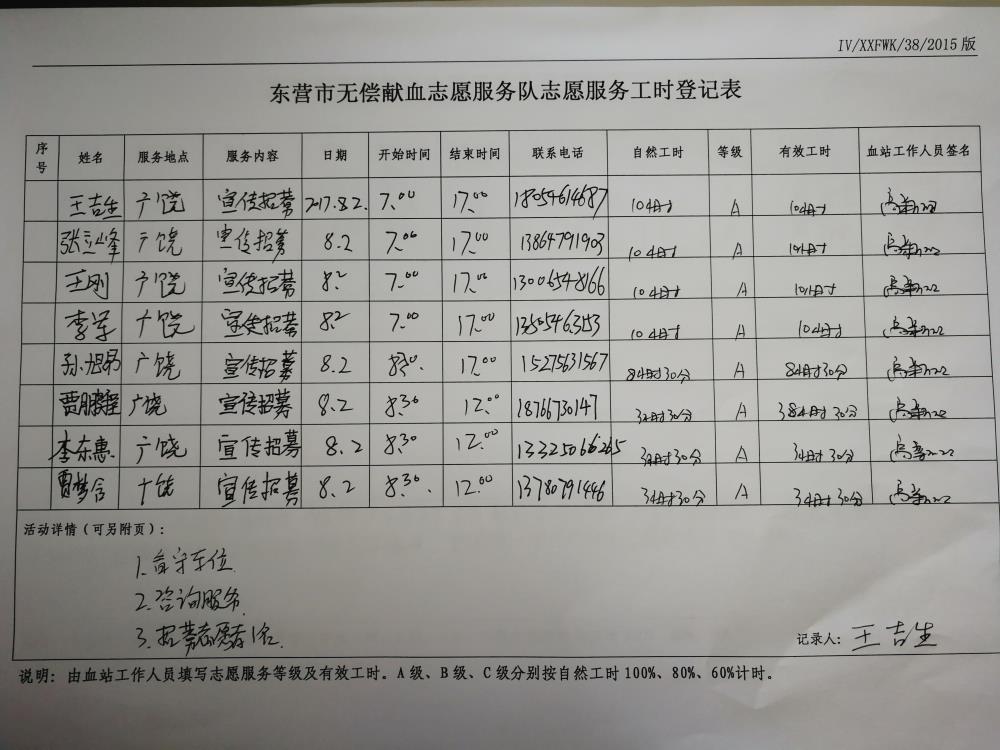 IV/XXFWK/38/2015 版
东营市无偿献血志愿服务队志愿服务工时登记表
序号 姓名 服务地点 服务内容 日期 开始时间 结束时间 联系电话 自然工时 等级 有效工时 血站工作人员签名
王吉生 广饶 宣传招募 2017.8.2. 7:00 17:00 18054614687 10小时 A 10小时
张立峰 广饶 宣传招募 8.2 7:00 17:00 13864791903 10小时 A 10小时
王刚 广饶 宣传招募 8.2 7:00 17:00 13006548166 10小时 A 10小时
李军 广饶 宣传招募 8.2 7:00 17:00 13505463153 10小时 A 10小时
孙旭昂 广饶 宣传招募 8.2 8:30. 17:00 15275631567 8小时30分 A 8小时30分
贾鹏程 广饶 宣传招募 8.2 8:30 12:00 18766730147 3小时30分 A 3小时30分
李东惠 广饶 宣传招募 8.2 8:30 12:00 13325066265 3小时30分 A 3小时30分
贾梦含 广饶 宣传招募 8.2 8:30. 12:00 13780791446 3小时30分 A 3小时30分
活动详情（可另附页）：
1. 看守车位
2. 咨询服务
3. 招募志愿者1名.
记录人：王吉生
说明：由血站工作人员填写志愿服务等级及有效工时。A 级、B 级、C 级分别按自然工时 100%、80%、60%计时。